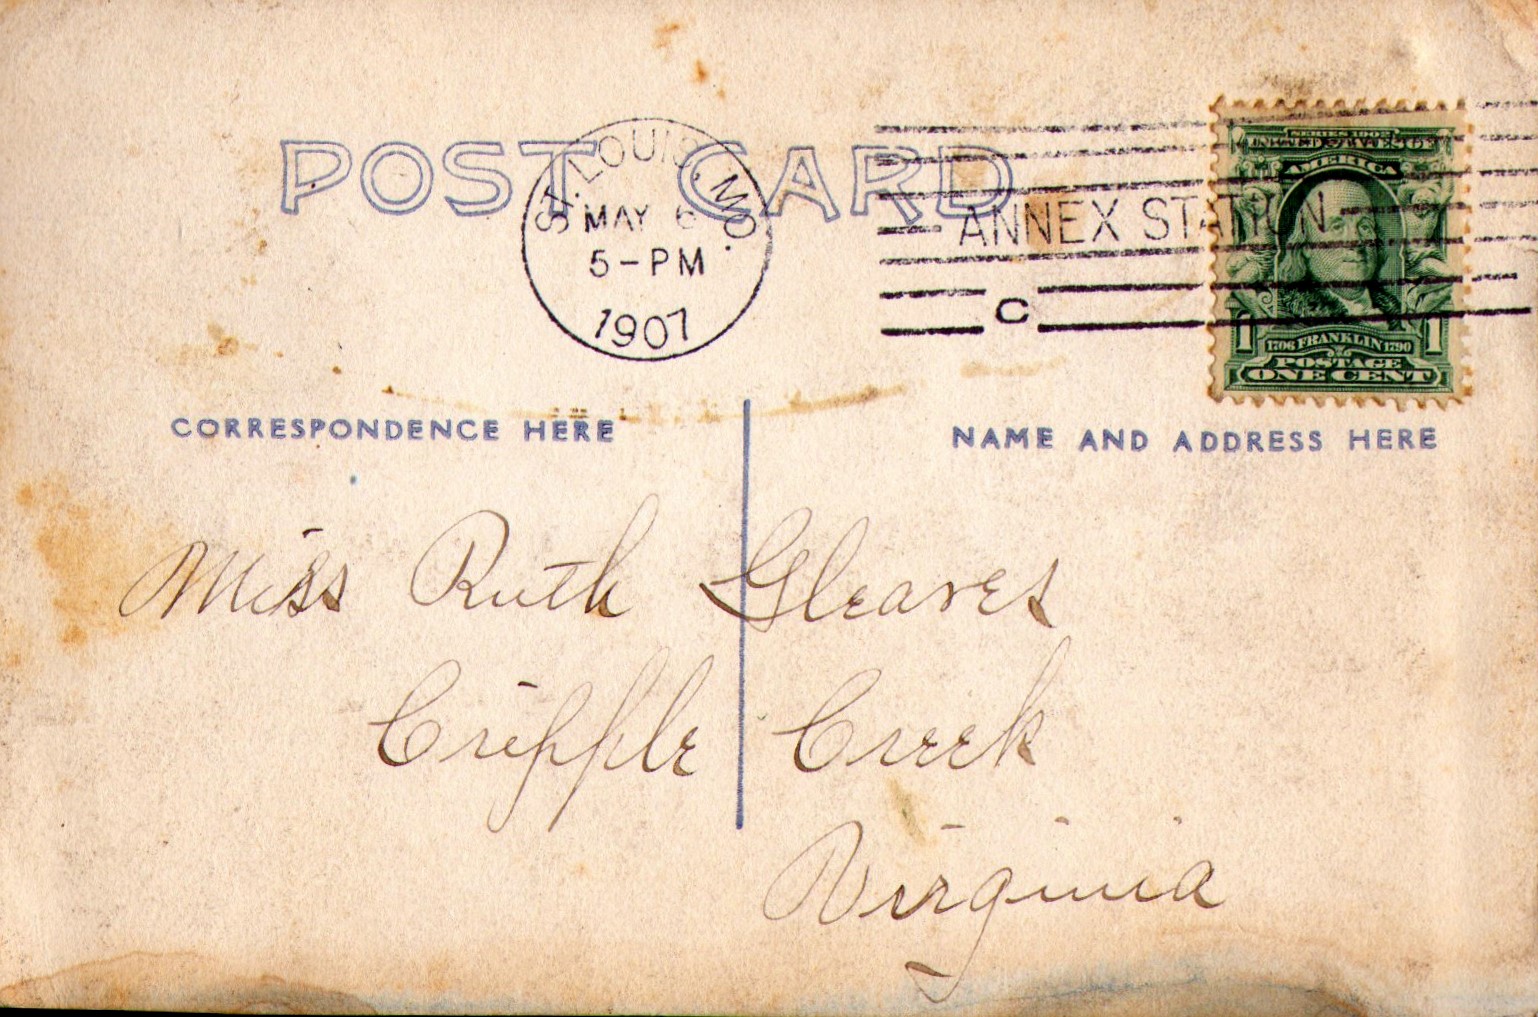 POST CARD
ST. LOUIS, MO.
MAY 6
5-PM
1907
ANNEX STATION
C
SERIES 1902
AMERICA
1 1
1706 FRANKLIN 1790
POSTAGE
ONE CENT
CORRESPONDENCE HERE
NAME AND ADDRESS HERE
Miss Ruth Gleaves
Cripple Creek
Virginia